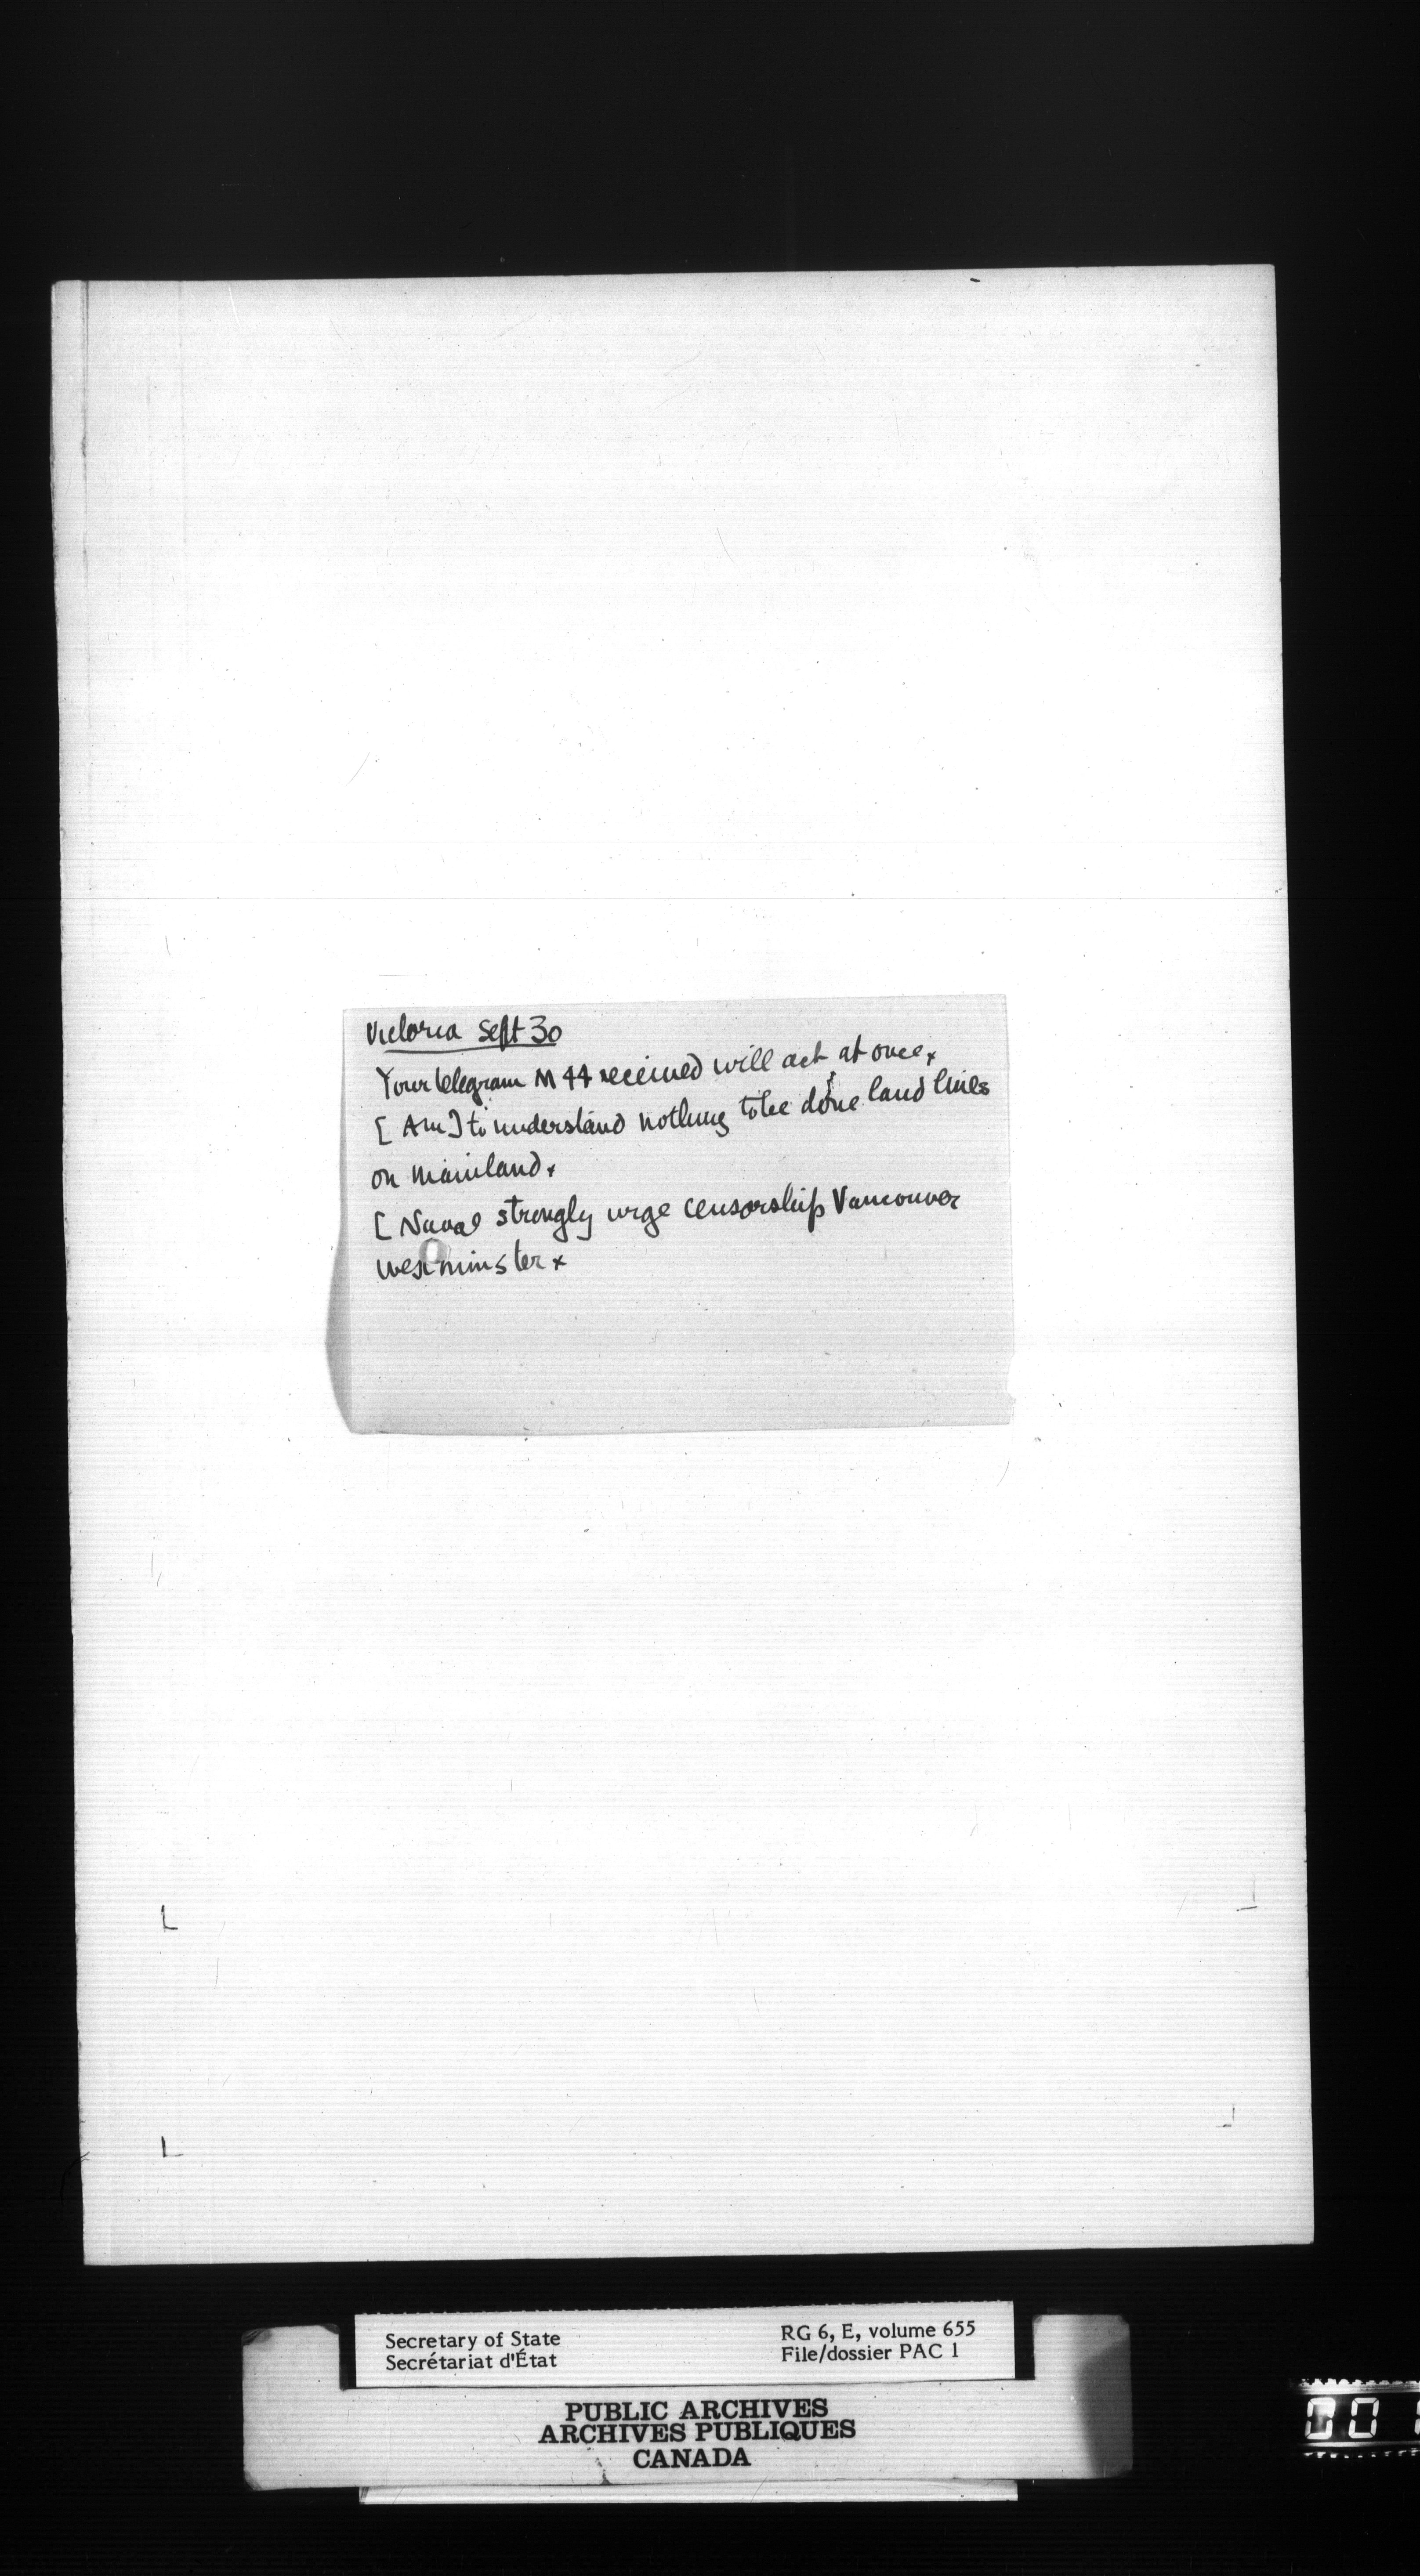 Victoria Sept 30
Your telegram M 44 received will act at once x
[ Am ] to understand nothing to be done land lines
on mainland x
[ Naval strongly urge censorship Vancouver
Westminster x
Secretary of State
Secrétariat d'État
RG 6, E, volume 655
File/dossier PAC 1
PUBLIC ARCHIVES
ARCHIVES PUBLIQUES
CANADA